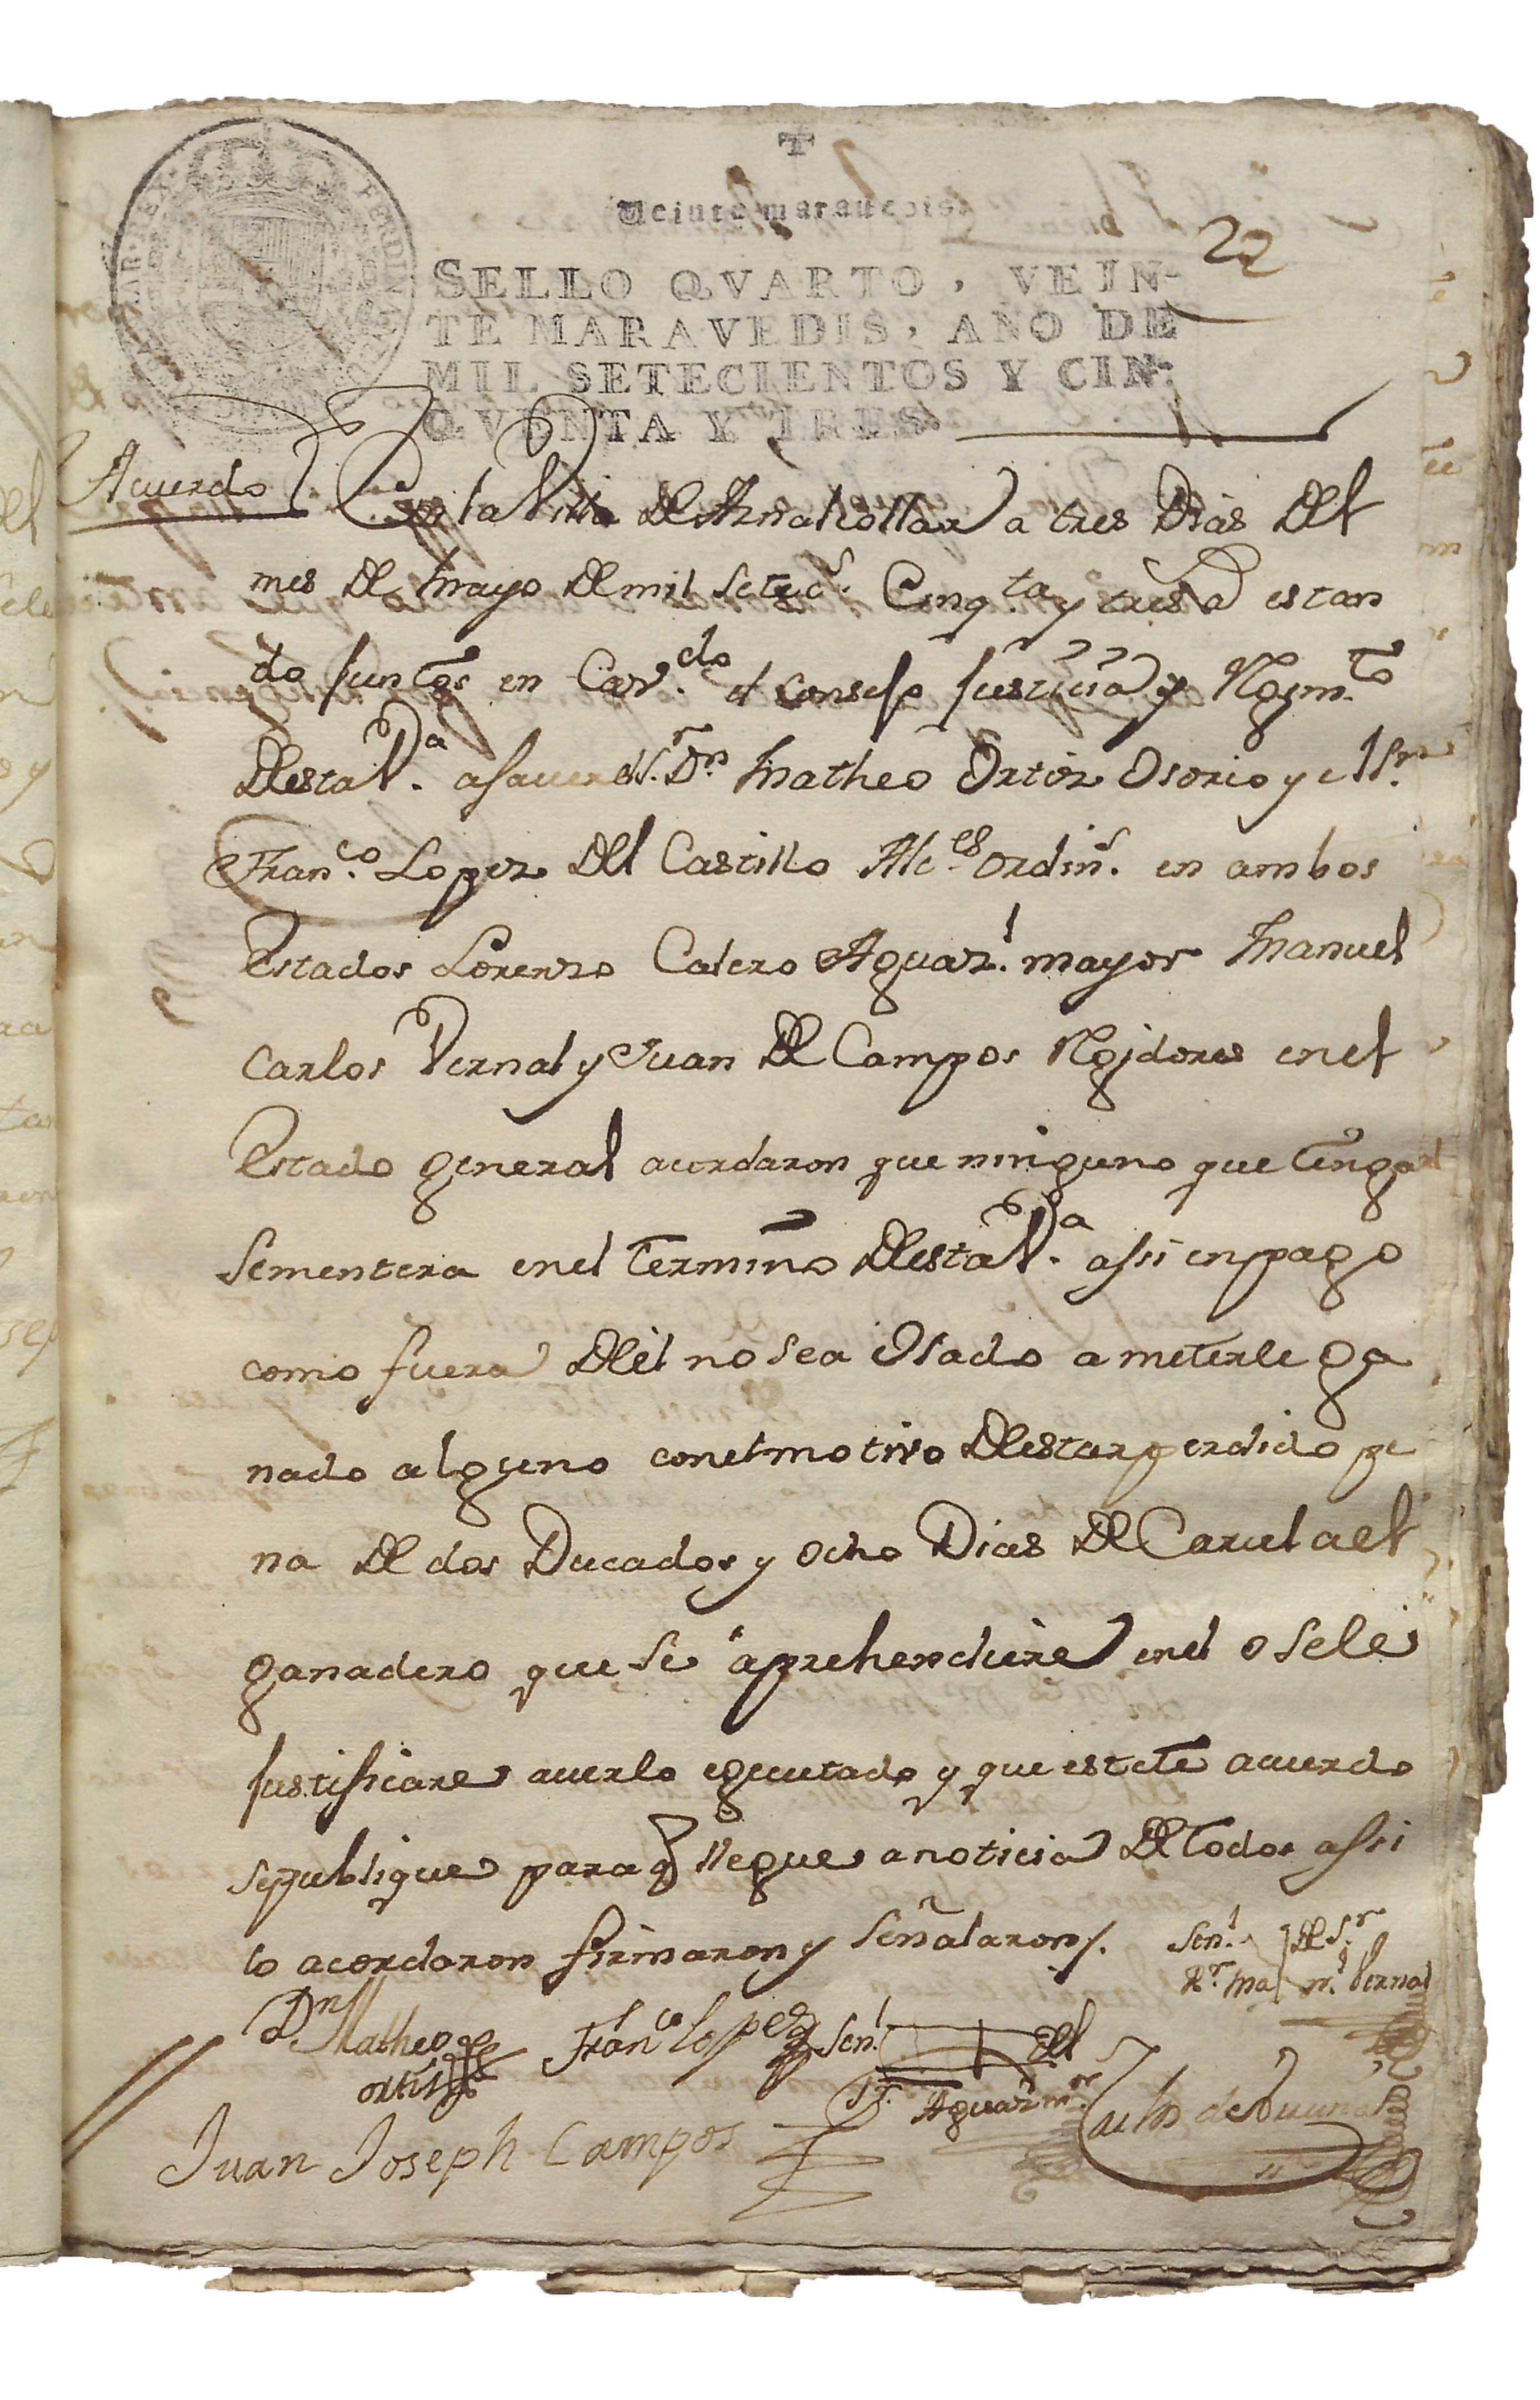 Veinte maravedis.
22
SELLO QVARTO, VEIN-
TE MARAVEDIS, AÑO DE
MIL SETECIENTOS Y CIN-
QVENTA Y TRES.
Acuerdo
En la Villa De Aznalcollar a tres Dias Del
mes De Mayo De mil Setez.s Cinq.ta y tres a estan
do juntos en Cav.do el Consejo justicia y Rejim.to
Desta V.a a saver el S.r D.n Matheo Ortiz Osorio y el S.r
Fran.co Lopez Del Castillo Alc.es ordin.s en ambos
Estados Lorenzo Calero Aguaz.l mayor Manuel
Carlos Vernal y Juan De Campos Rejidores en el
Estado general acordaron que ninguno que tenga
Sementera en el termino Desta V.a assi en pago
como fuera Del no sea Osado a meterle ga
nado alguno con el motivo De estar perdido pe
na De dos Ducados y ocho Dias De Carcel a el
ganadero que se aprehendiere en el o se le
justificare averlo egecutado y que este acuerdo
se publique para q llegue a noticia De todos assi
lo acordaron firmaron y Señalaron/.
Señ.l Del S.r
R.r Man.l Vernal
D.n Matheo Fran.co Lopez Señ.l Del
ortiz S.r Aguaz.l m.or
Juan Joseph Campos